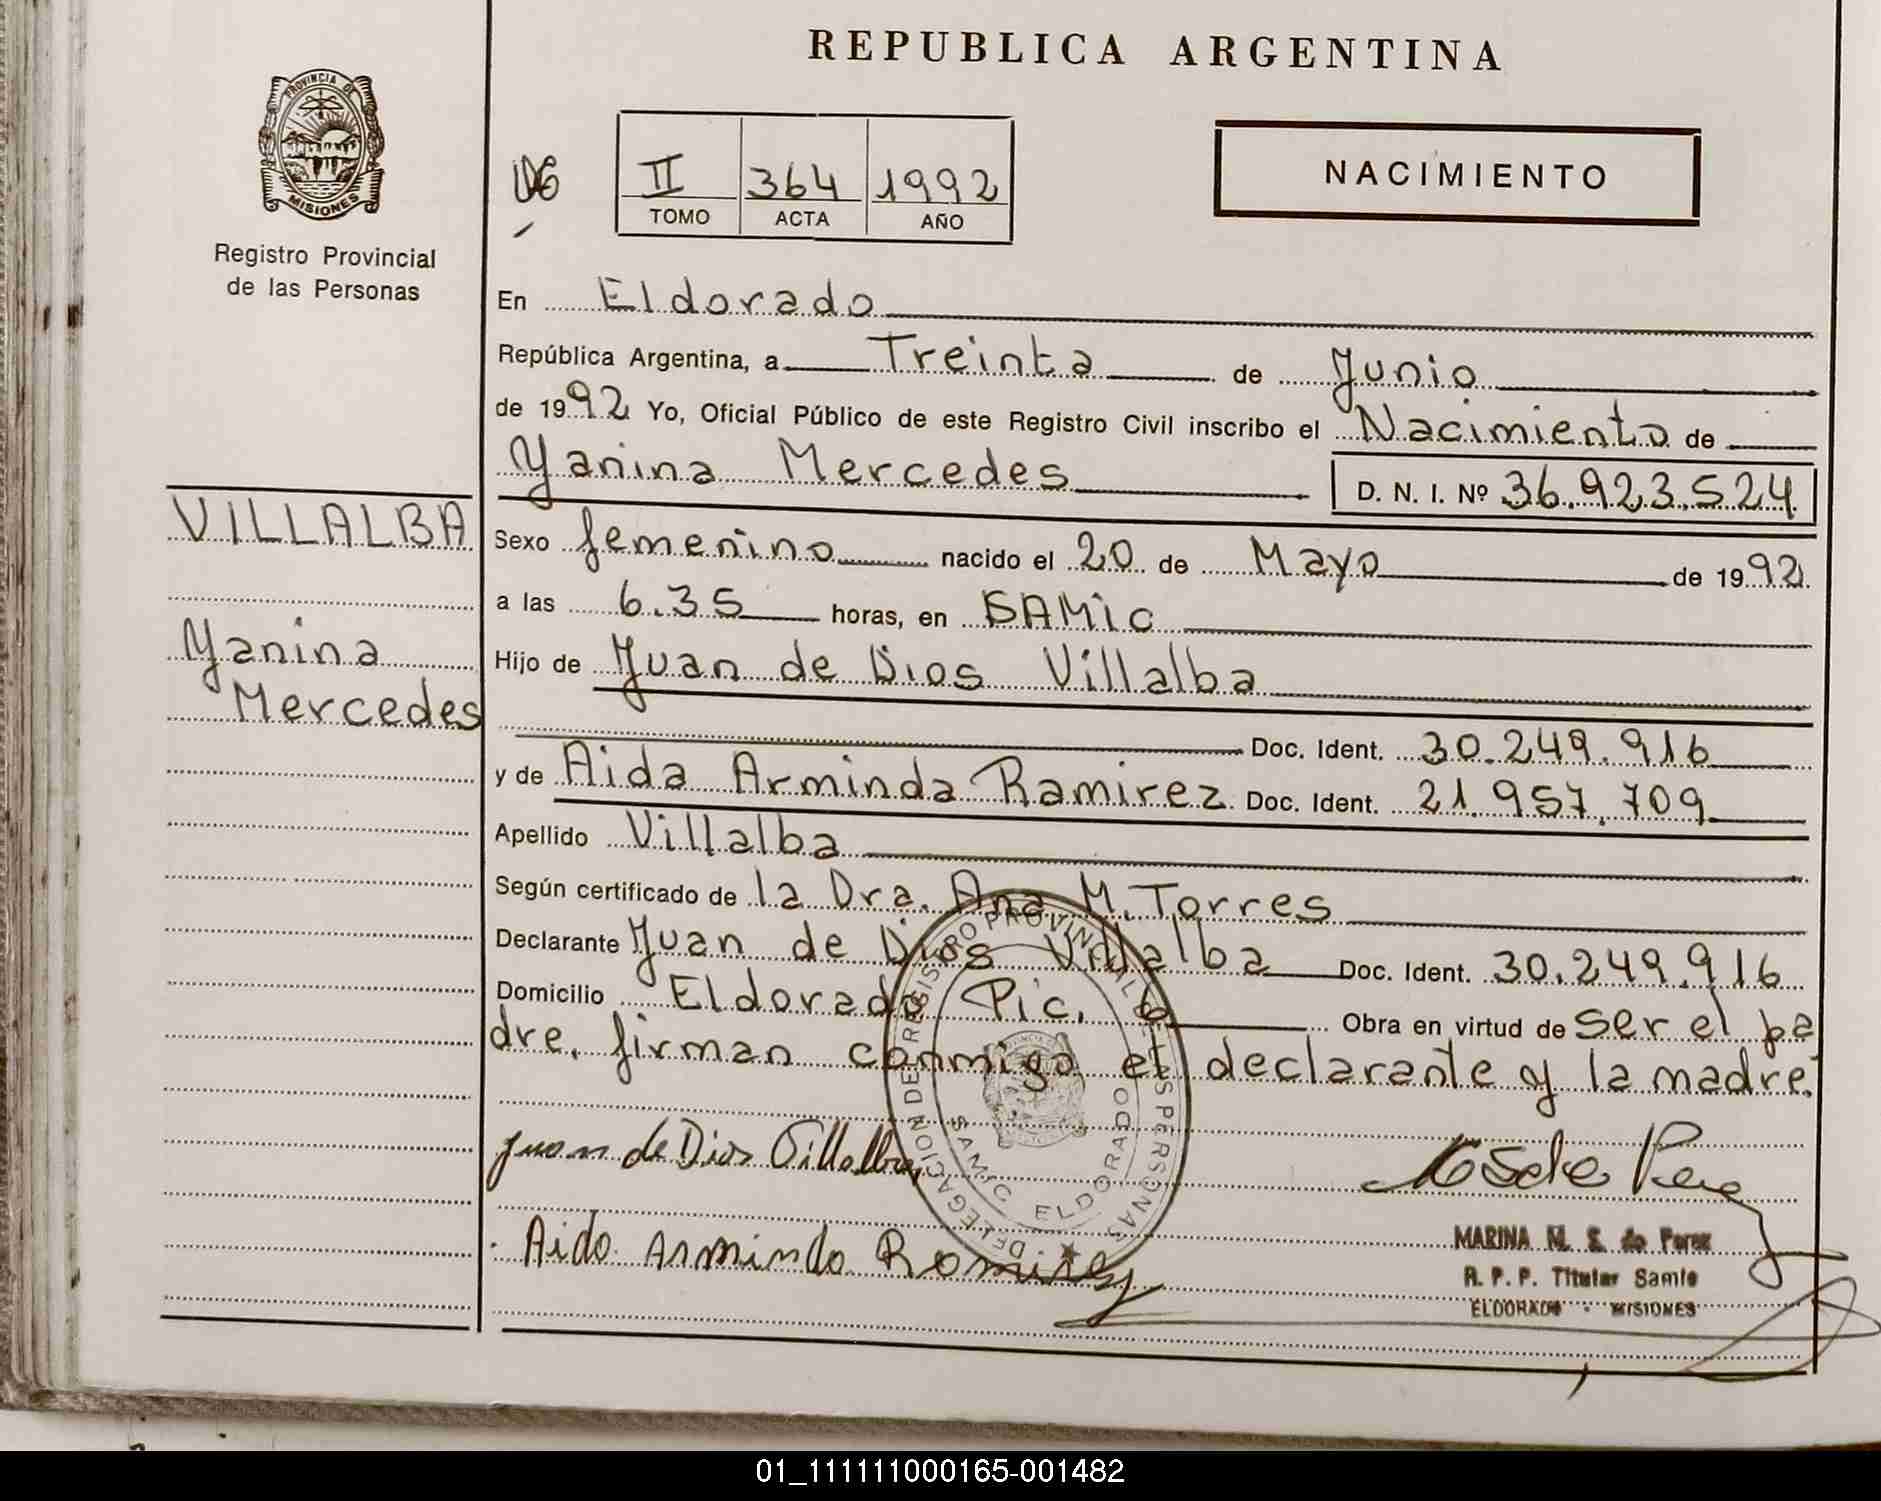 REPUBLICA ARGENTINA
PROVINCIA DE
MISIONES
Registro Provincial
de las Personas
II 364 1992
TOMO ACTA AÑO
NACIMIENTO
En Eldorado
República Argentina, a Treinta de Junio
de 1992 Yo, Oficial Público de este Registro Civil inscribo el Nacimiento de
Yanina Mercedes D. N. I. Nº 36.923.524
VILLALBA
Yanina
Mercedes
Sexo femenino nacido el 20 de Mayo de 1992
a las 6.35 horas, en SAMIC
Hijo de Juan de Dios Villalba
Doc. Ident. 30.249.916
y de Aida Arminda Ramirez Doc. Ident. 21.957.709
Apellido Villalba
Según certificado de la Dra. Ana M. Torres
Declarante Juan de Dios Villalba Doc. Ident. 30.249.916
Domicilio Eldorado Pic. 6 Obra en virtud de ser el pa
dre. firman conmigo el declarante y la madre.
DELEGACION DE REGISTRO PROVINCIAL DE LAS PERSONAS
SAMIC ELDORADO
Juan de Dios Villalba
Aida Arminda Ramirez
MARINA M. S. de Perez
R. P. P. Titular Samic
ELDORADO - MISIONES
01_111111000165-001482